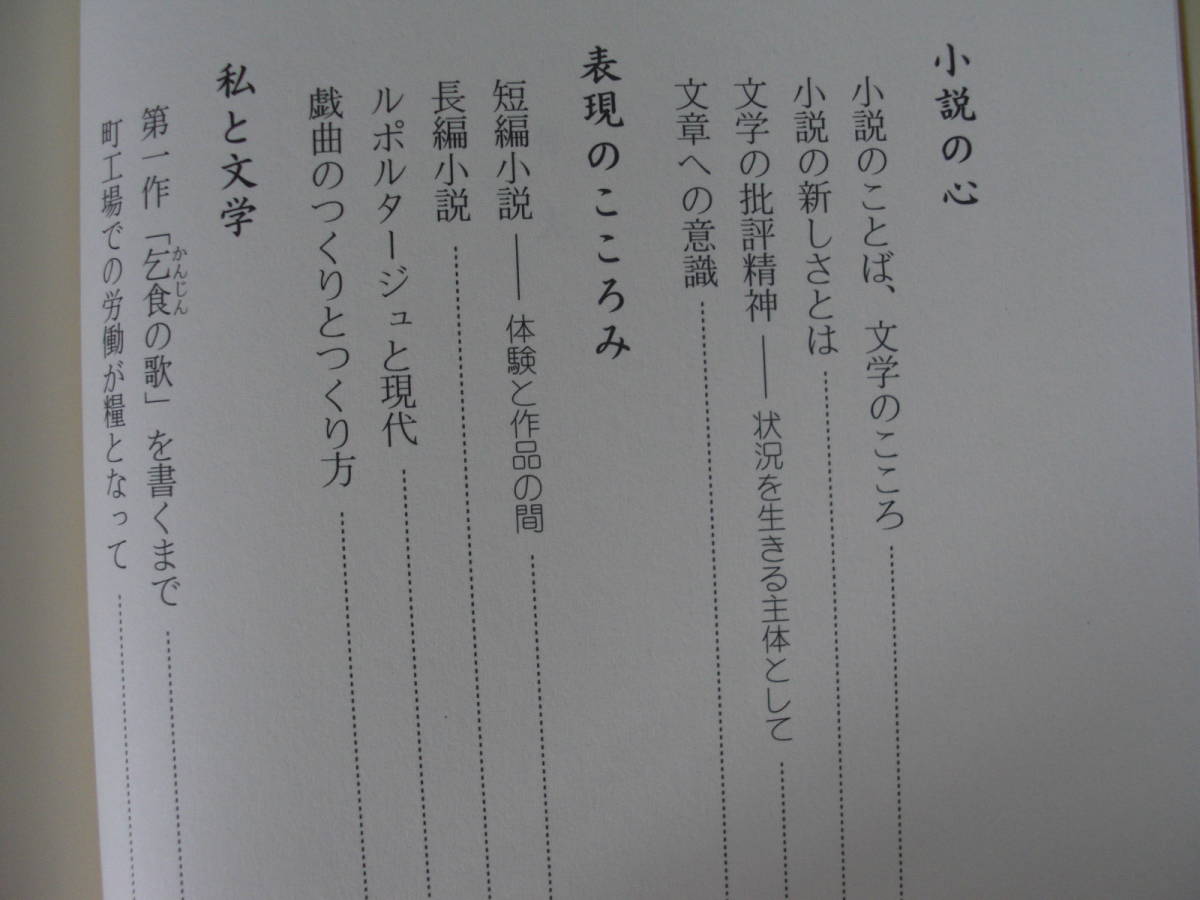 小説の心
小説のことば、文学のこころ
小説の新しさとは
文学の批評精神――状況を生きる主体として
文章への意識
表現のこころみ
短編小説――体験と作品の間
長編小説
ルポルタージュと現代
戯曲のつくりとつくり方
私と文学
第一作「乞食の歌」を書くまで
かんじん
町工場での労働が糧となって